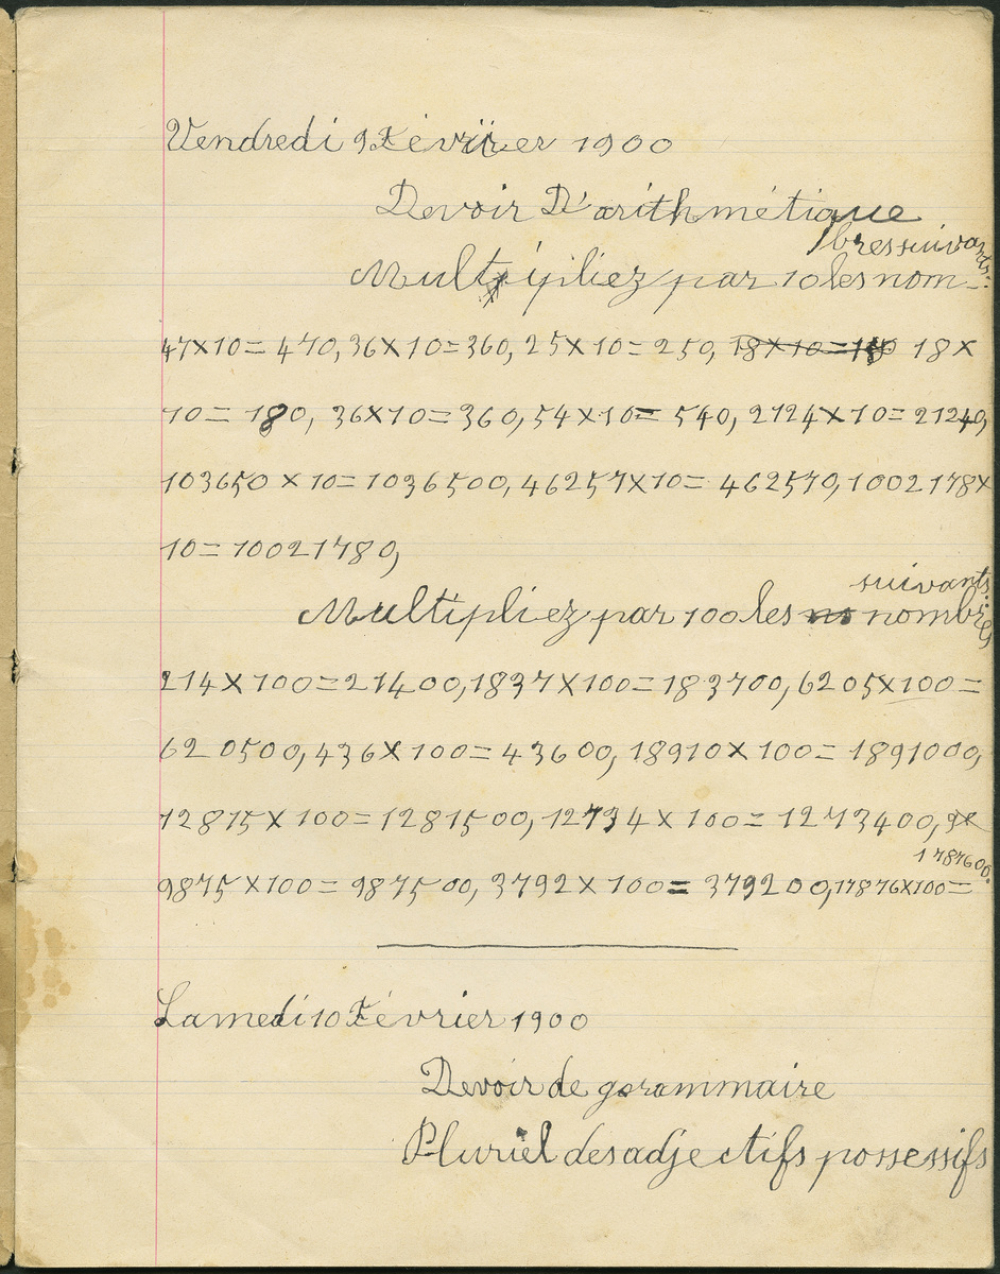 Vendredi 9 Février 1900
Devoir D'arithmétique
Multipliez par 10 les nom-
bres suivants:
47×10= 470, 36×10=360, 25×10= 250, 18×10=180 18×
10= 180, 36×10=360, 54×10= 540, 2124×10= 21240,
103650 × 10= 1036500, 46257×10= 462570, 1002178×
10= 10021780,
Multipliez par 100 les no nombres
suivants:
214×100=21400, 1837×100=183700, 6205×100=
620500, 436×100= 43600, 18910×100= 1891000,
12815×100=1281500, 12734×100= 1273400, 9×
9875×100= 987500, 3792×100= 379200, 17876×100=
1787600.
Samedi 10 Février 1900
Devoir de grammaire
Pluriel des adjectifs possessifs